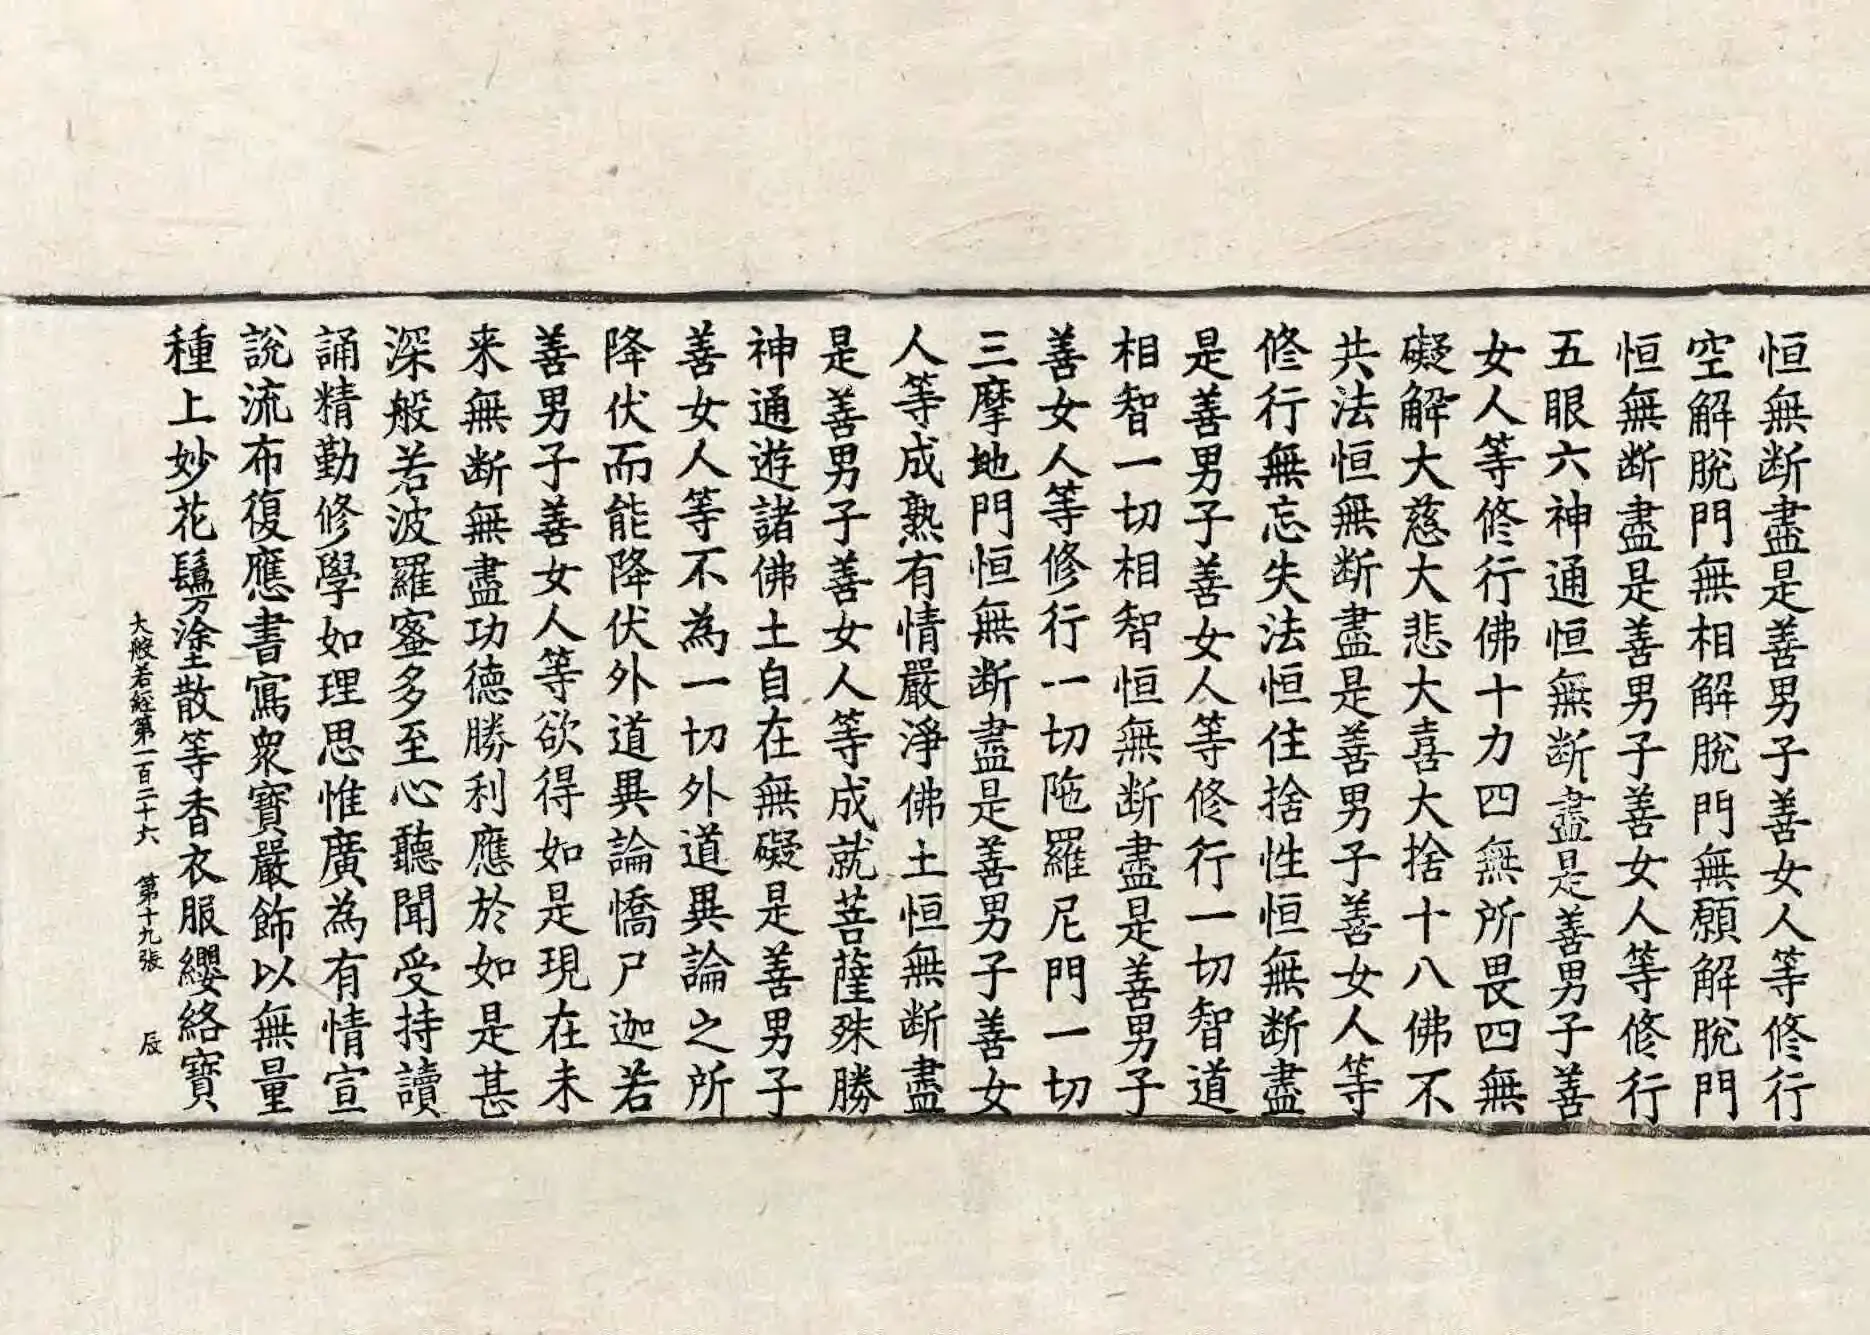 恒無断盡是善男子善女人等修行
空解脫門無相解脫門無願解脫門
恒無断盡是善男子善女人等修行
五眼六神通恒無断盡是善男子善
女人等修行佛十力四無所畏四無
礙解大慈大悲大喜大捨十八佛不
共法恒無断盡是善男子善女人等
修行無忘失法恒住捨性恒無断盡
是善男子善女人等修行一切智道
相智一切相智恒無断盡是善男子
善女人等修行一切陁羅尼門一切
三摩地門恒無断盡是善男子善女
人等成熟有情嚴淨佛土恒無断盡
是善男子善女人等成就菩薩殊勝
神通遊諸佛土自在無礙是善男子
善女人等不為一切外道異論之所
降伏而能降伏外道異論憍尸迦若
善男子善女人等欲得如是現在未
来無断無盡功德勝利應於如是甚
深般若波羅蜜多至心聽聞受持讀
誦精勤修學如理思惟廣為有情宣
說流布復應書寫衆寶嚴飾以無量
種上妙花鬘塗散等香衣服纓絡寶
大般若經第一百二十六 第十九張 辰